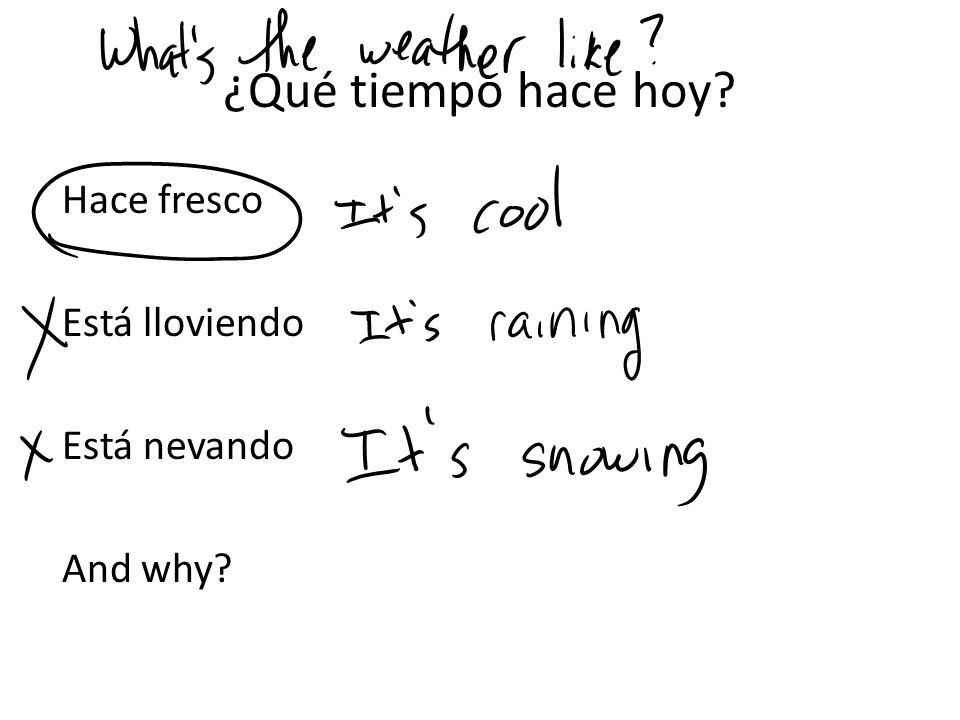 What's the weather like?
¿Qué tiempo hace hoy?
Hace fresco It's cool
Está lloviendo It's raining
Está nevando It's snowing
And why?